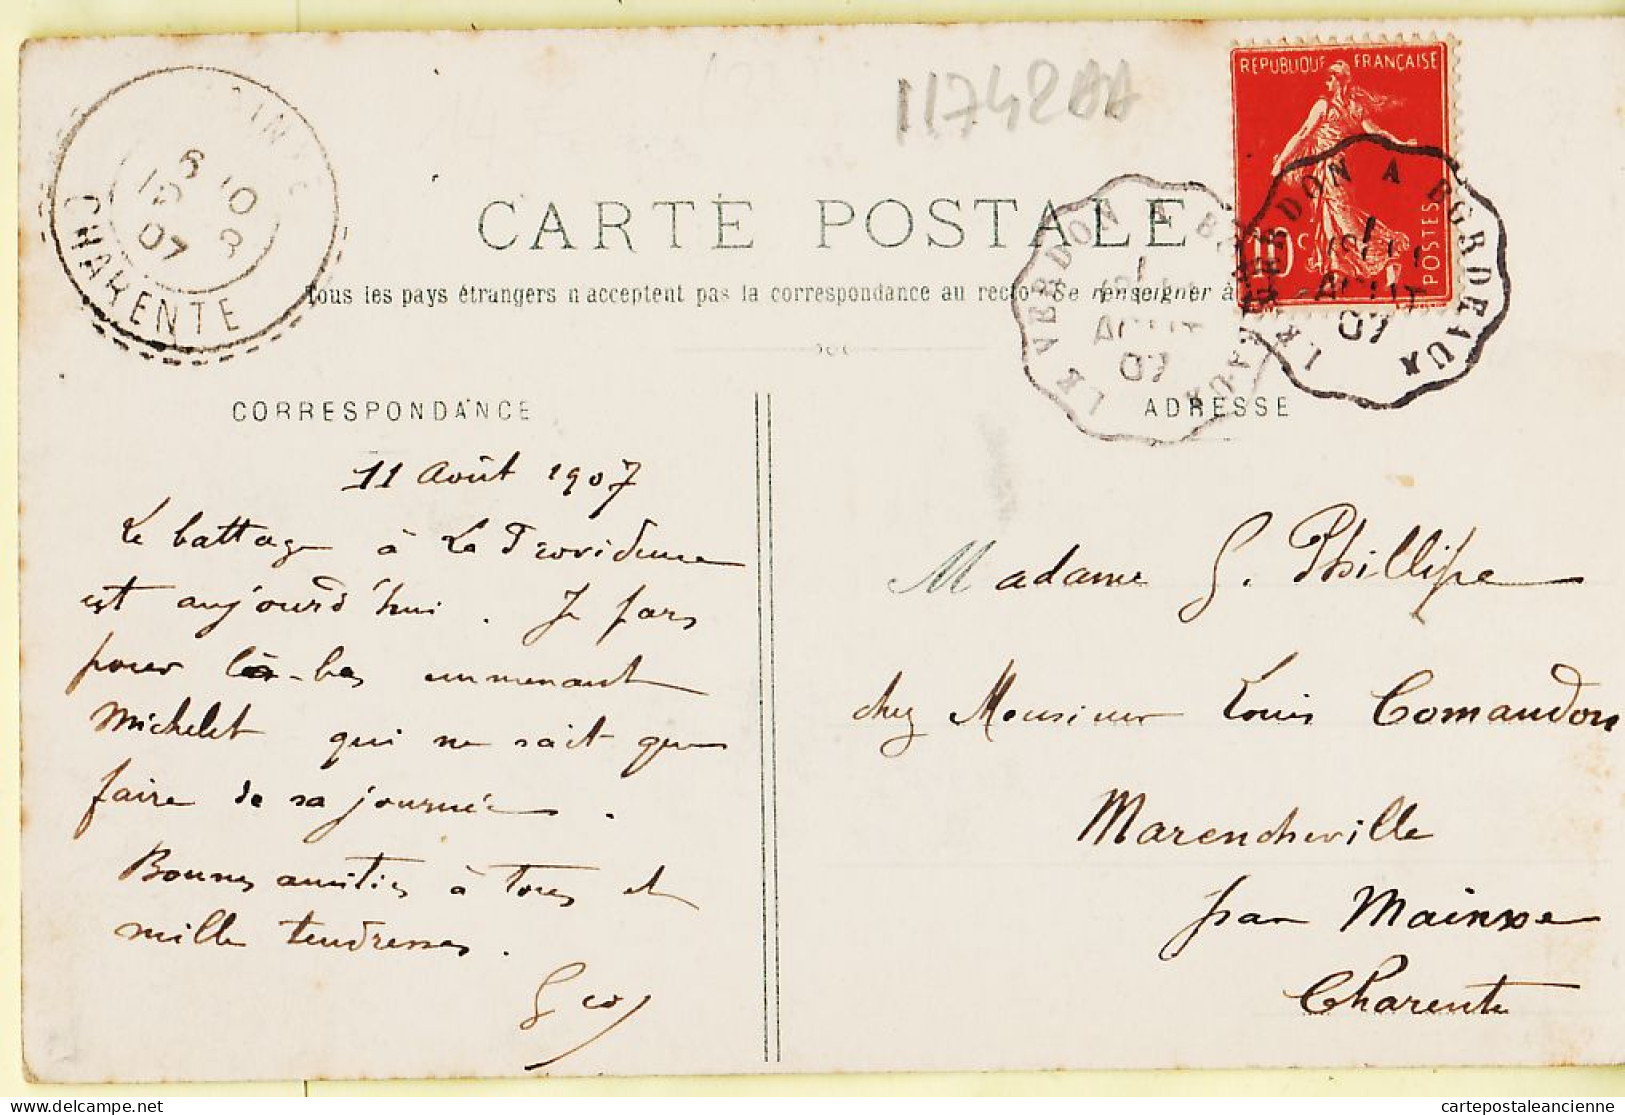 11742AA
REPUBLIQUE FRANÇAISE
10c
POSTES
CHARENTE
07
LE VERDON A BORDEAUX
AOUT
07
LE VERDON A BORDEAUX
AOUT
07
CARTE POSTALE
Tous les pays étrangers n'acceptent pas la correspondance au recto. Se renseigner à
CORRESPONDANCE
ADRESSE
11 Août 1907
Le battage à La Providence
est aujourd'hui. Je pars
pour là-bas emmenant
Michelet qui ne sait que
faire de sa journée.
Bonnes amitiés à tous et
mille tendresses.
Madame G. Phillipe
chez Monsieur Louis Comandon
Marencheville
par Mainxe
Charente
delcampe.net
cartepostaleancienne